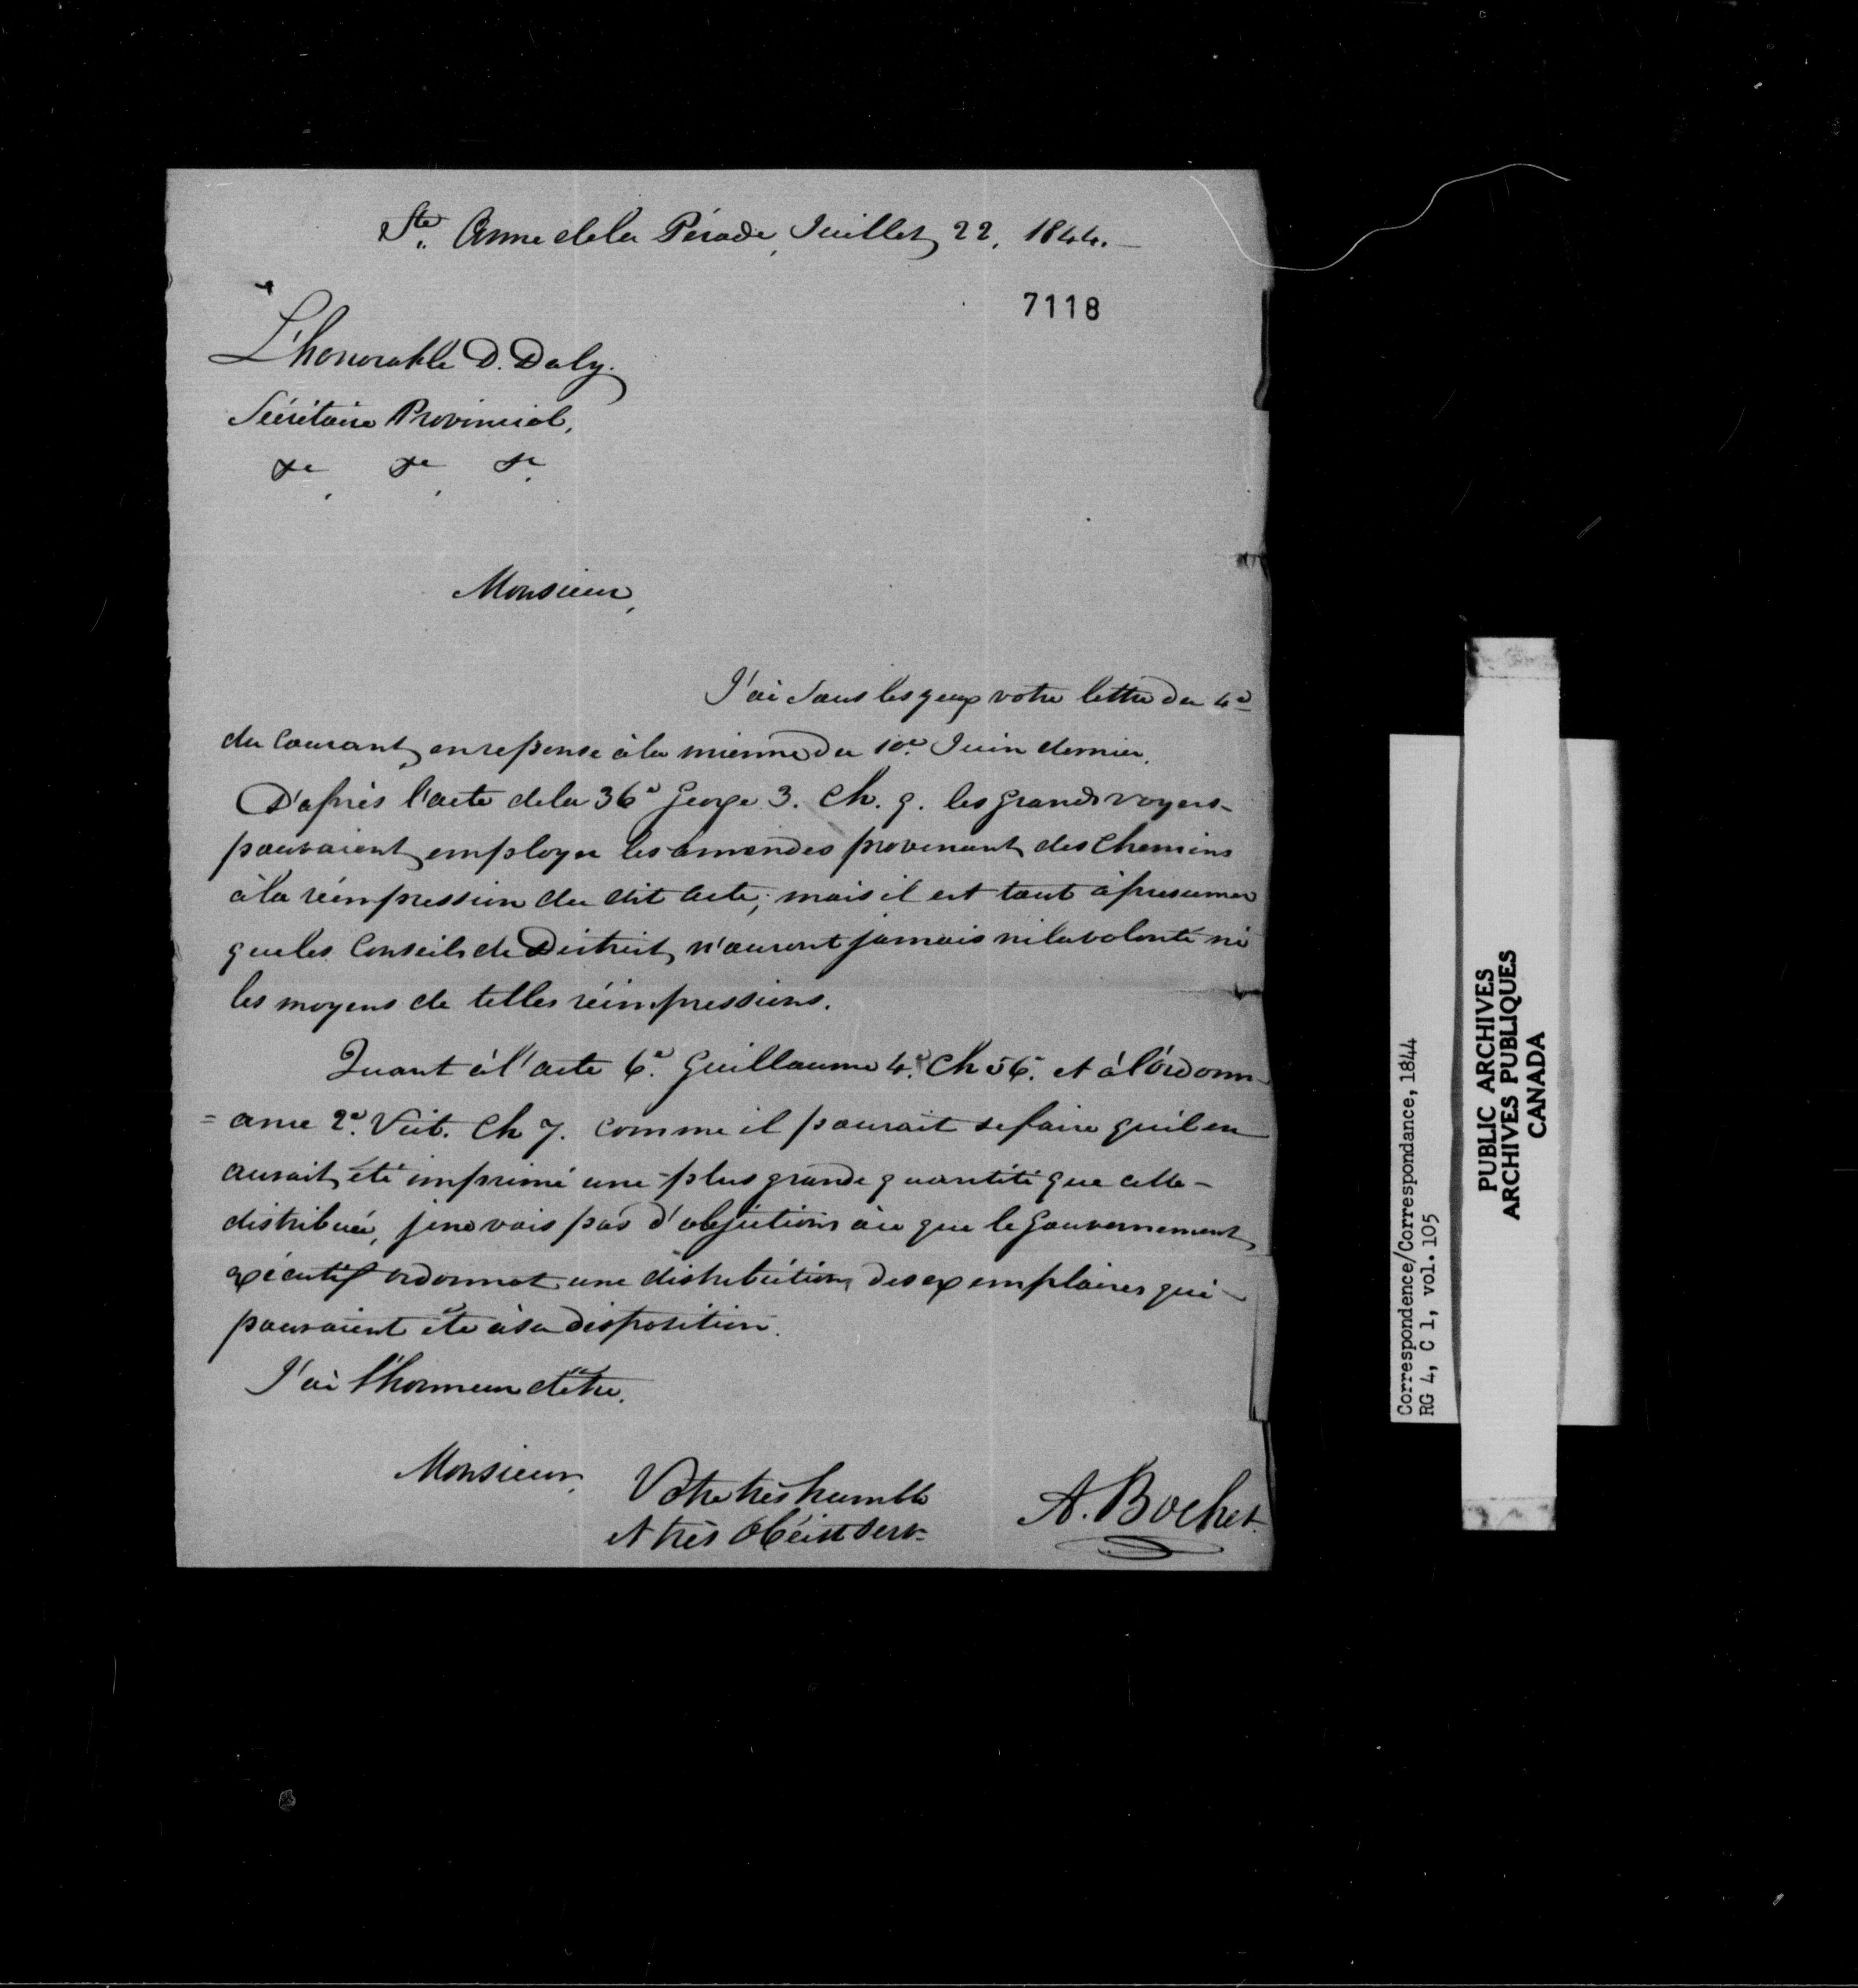 Ste Anne de la Pérade, Juillet 22, 1844.
7118
L'honorable D. Daly.
Sécrétaire Provincial,
&c &c &c
Monsieur,
J'ai sous les yeux votre lettre du 4e
du Courant, en reponse à la mienne du 10e Juin dernier.
D'après l'acte de la 36e George 3. Ch. 9. les grands voyers
pouvaient employer les amendes provenant des Chemins
à la réimpression du dit acte; mais il est tout à présumer
que les Conseils de District n'auront jamais ni la volonté ni
les moyens de telles réimpressions.
Quant à l'acte 6e Guillaume 4e Ch 56. et à l'ordonn-
=ance 2e Vict. Ch 7. comme il pourait se faire qu'il en
aurait été imprimé une plus grande quantité que celle
distribuée, je ne vois pas d'objections à ce que le Gouvernement
exécutif ordonnat une distribution des exemplaires qui
pouvaient être à sa disposition.
J'ai l'honneur d'être,
Monsieur,
Votre très humble
et très obéisst serv.
A. Bochet
Correspondence/Correspondance, 1844
RG 4, C 1, vol. 105
PUBLIC ARCHIVES
ARCHIVES PUBLIQUES
CANADA